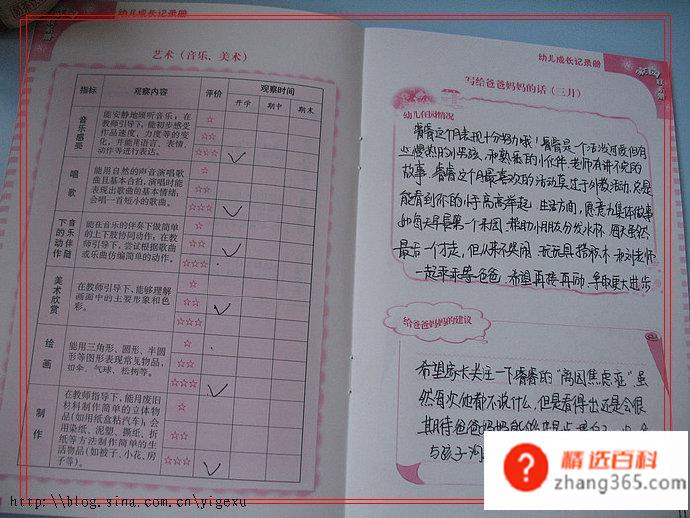 幼儿成长记录册
艺术（音乐、美术）
指标 观察内容 评价 观察时间
开学 期中 期末
音乐感受
能安静地倾听音乐；在
教师引导下，能初步感受
作品速度、力度等的变
化，并能用语言、表情、
动作等进行表达。
☆
☆☆
☆☆☆
唱歌
能用自然的声音演唱歌
曲且基本合拍，演唱时能
表现出歌曲的基本情绪；
会唱一首短小的歌曲。
☆
☆☆
☆☆☆
音乐伴随下的动作
能在音乐的伴奏下做简单
的上下肢协同动作；在教
师引导下，尝试根据歌曲
或乐曲仿编简单的动作。
☆
☆☆
☆☆☆
美术欣赏
在教师引导下，能够理解
画面中的主要形象和色
彩。
☆
☆☆
☆☆☆
绘画
能用三角形、圆形、半圆
形等图形表现常见物品，
如伞、气球、松树等。
☆
☆☆
☆☆☆
制作
在教师指导下，能用废旧
材料制作简单的立体物
品（如用纸盒粘汽车）；会
用染纸、泥塑、撕纸、折
纸等方法制作简单的生
活物品（如被子、小花、房
子等）。
☆
☆☆
☆☆☆
幼儿成长记录册
写给爸爸妈妈的话（三月）
幼儿在园情况
睿睿这个月表现十分努力哦！睿睿是个活泼可爱但有
些慢热的小男孩，和熟悉的小伙伴、老师有讲不完的
故事。睿睿这个月最喜欢的活动莫过于小数活动，总是
能看到你的小手高高举起。生活方面，愿意为集体做事
如每天早晨第一个来园，帮助小朋友分发水杯。周天虽然
最后一个才走，但从来不哭闹，玩玩具、搭积木，和刘老师
一起乖乖等爸爸。希望再接再励，争取更大进步
给爸爸妈妈的建议
希望家长关注一下睿睿的“离园焦虑症”虽
然每次他都不说什么，但是看得出还是会很
期待爸爸妈妈能
与孩子沟
精选百科
zhang365.com
http://blog.sina.com.cn/yigexu